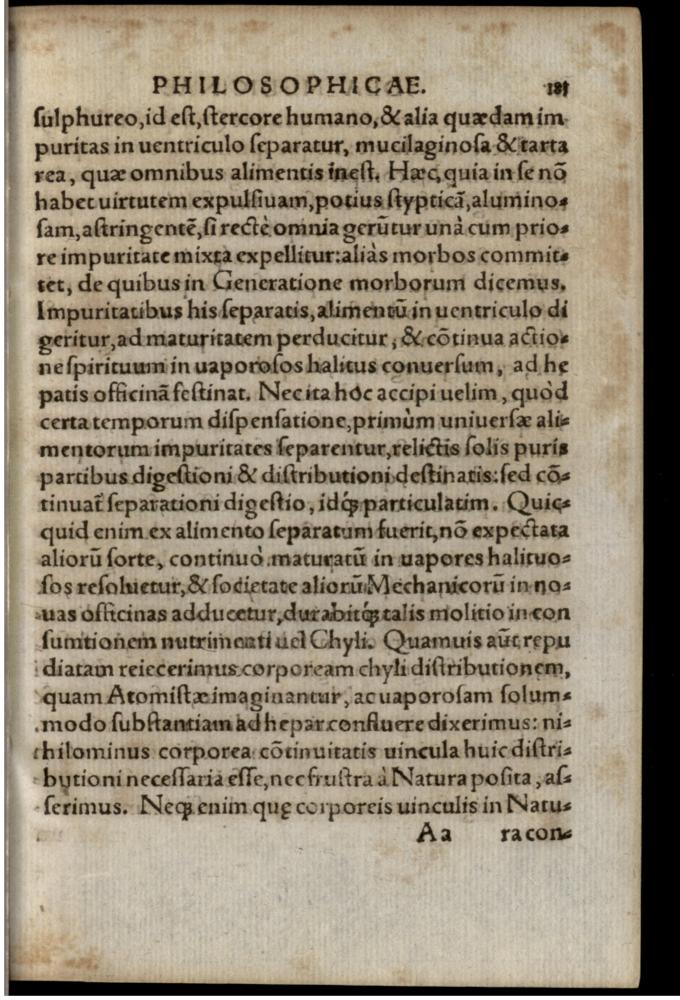 PHILOSOPHICAE. 185
ſulphureo, id eſt, ſtercore humano, & alia quædam im
puritas in uentriculo ſeparatur, mucilaginoſa & tarta
rea, quæ omnibus alimentis ineſt. Hæc, quia in ſe nõ
habet uirtutem expulſiuam, potius ſtypticã, alumino⸗
ſam, aſtringentẽ, ſi rectè omnia gerũtur unà cum prio⸗
re impuritate mixta expellitur: aliàs morbos commit⸗
tet, de quibus in Generatione morborum dicemus.
Impuritatibus his ſeparatis, alimentũ in uentriculo di
geritur, ad maturitatem perducitur, & cõtinua actio⸗
ne ſpirituum in uaporoſos halitus conuerſum, ad he
patis officinã feſtinat. Nec ita hoc accipi uelim, quòd
certa temporum diſpenſatione, primùm uniuerſæ ali⸗
mentorum impuritates ſeparentur, relictis ſolis puris
partibus digeſtioni & diſtributioni deſtinatis: ſed cõ⸗
tinuat̃ ſeparationi digeſtio, idq́ꝫ particulatim. Quic⸗
quid enim ex alimento ſeparatum fuerit, nõ expectata
aliorũ ſorte, continuò maturatũ in uapores halituo⸗
ſos reſoluetur, & ſocietate aliorũ Mechanicorũ in no⸗
uas officinas adducetur, durabitq́ꝫ talis molitio in con
ſumtionem nutrimenti uel Chyli. Quamuis aũt repu
diatam reiecerimus corpoream chyli diſtributionem,
quam Atomiſtæ imaginantur, ac uaporoſam ſolum⸗
modo ſubſtantiam ad hepar confluere dixerimus: ni⸗
hilominus corporea cõtinuitatis uincula huic diſtri⸗
butioni neceſſaria eſſe, nec fruſtra à Natura poſita, aſ⸗
ſerimus. Neqꝫ enim quę corporeis uinculis in Natu⸗
Aa ra con⸗